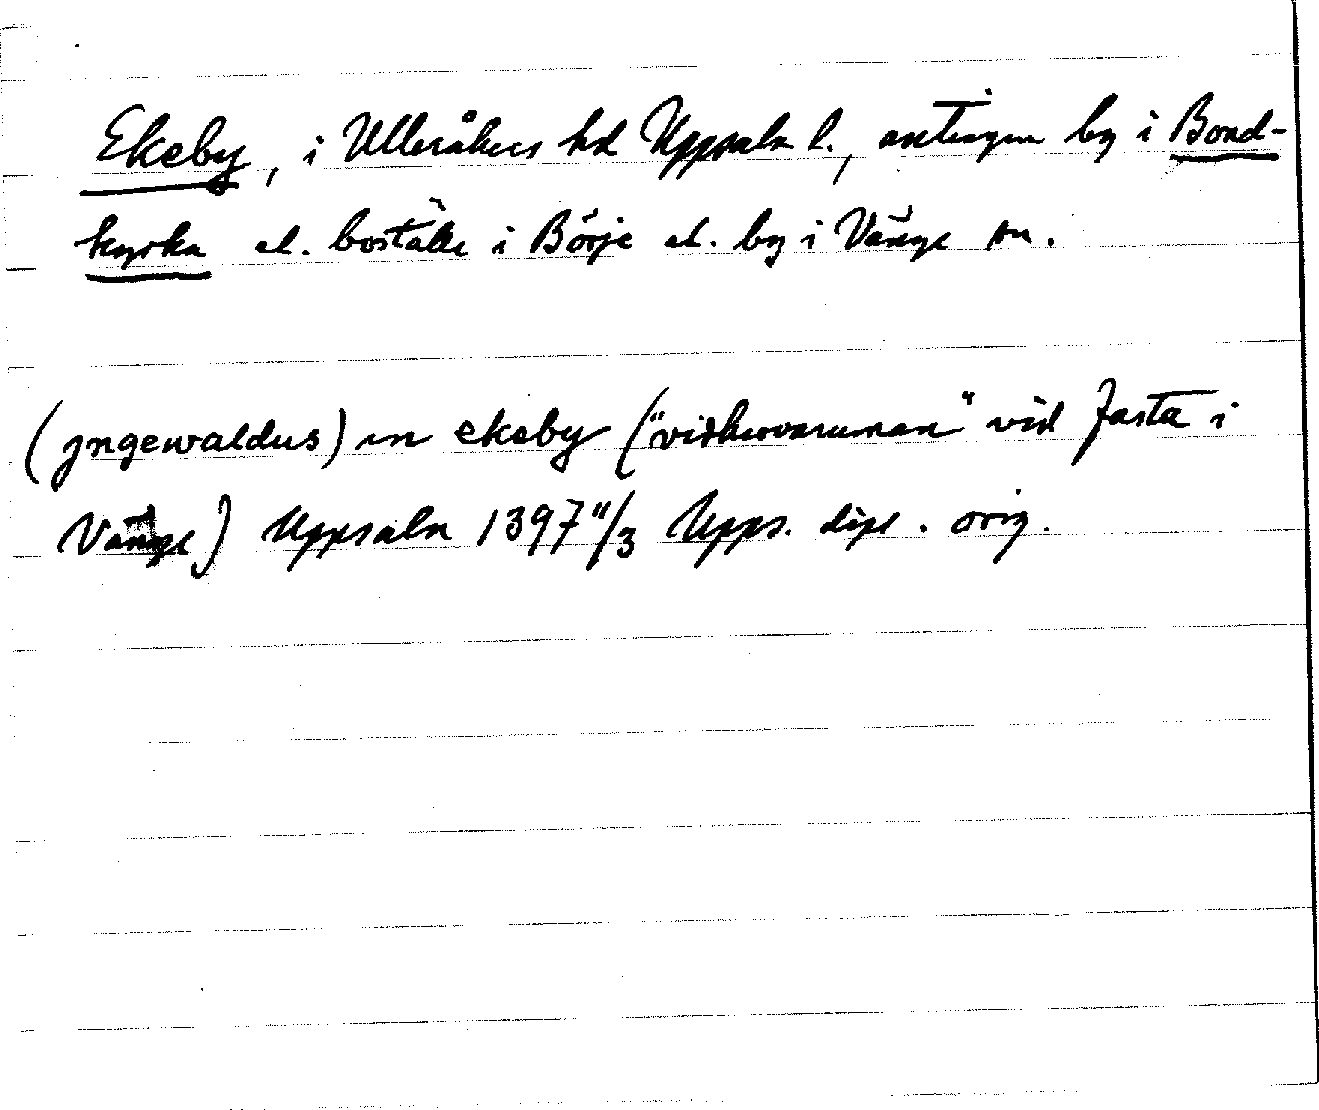 Ekeby, i Ulleråkers hd Uppsala l., antingen by i Bond-
kyrka el. boställe i Börje el. by i Vänge sn.
(jngewaldus) in ekeby ("vidhervaruman" vid fasta i
Vänge) Uppsala 1397 11/3 Upps. dipl. orig.